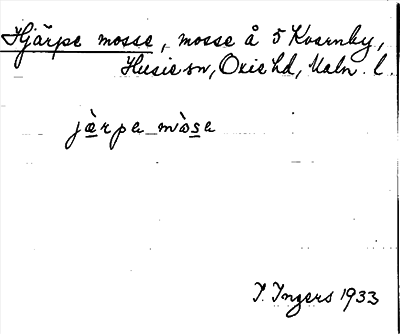 Hjärpe mosse, mosse å 5 Kvarnby,
Husie sn, Oxie hd, Malm. l.
jæ̀rpa mòsa
I. Ingers 1933